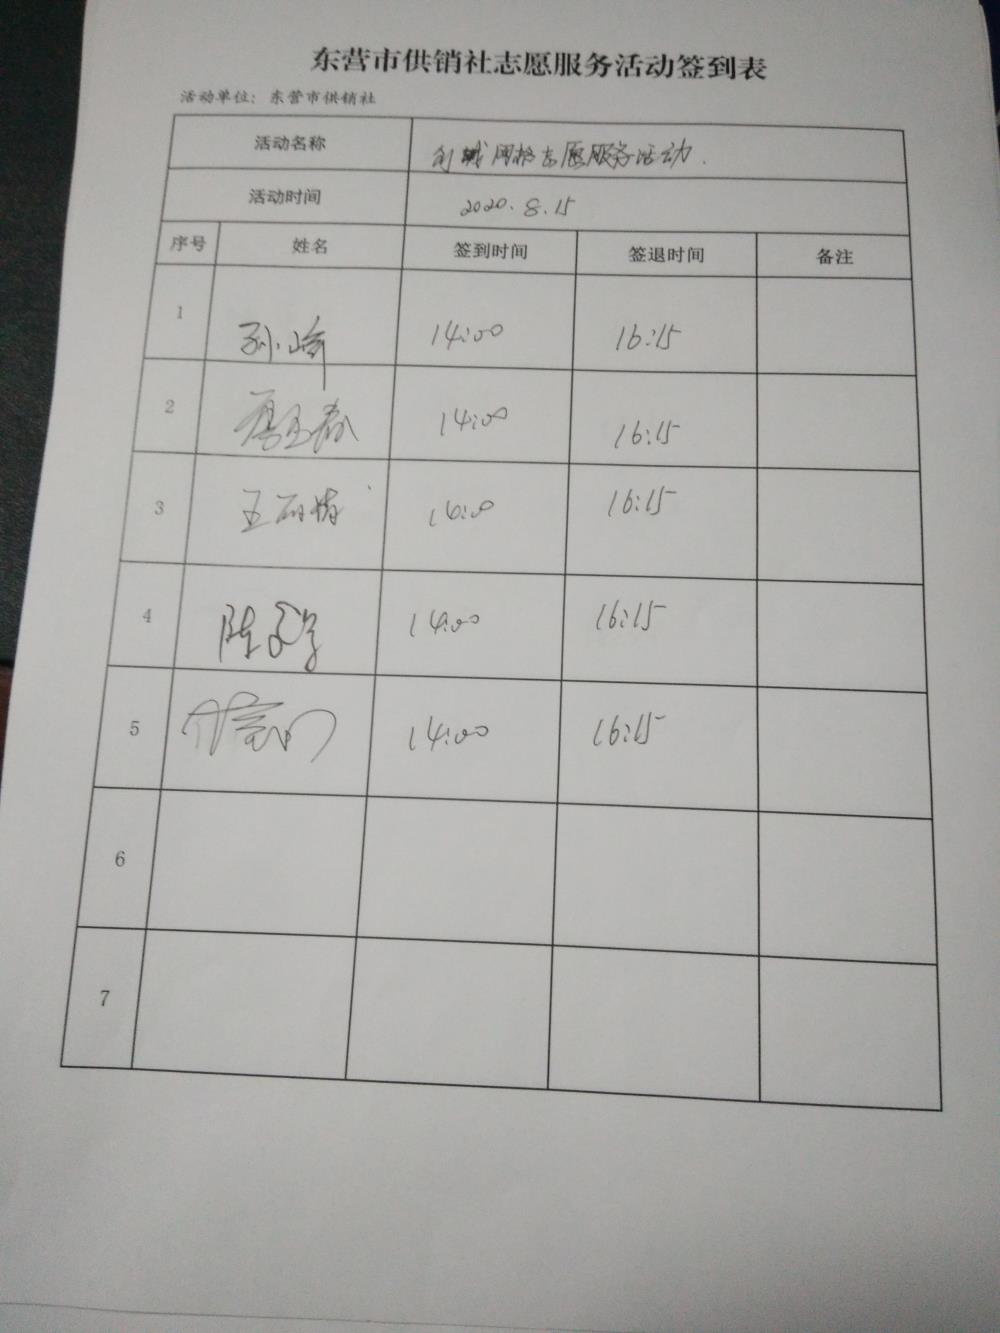 东营市供销社志愿服务活动签到表
活动单位：东营市供销社
活动名称 创城网格志愿服务活动.
活动时间 2020.8.15
序号 姓名 签到时间 签退时间 备注
1 孙崎 14:00 16:15
2 14:00 16:15
3 王 16:15
4 陈 14:00 16:15
5 14:00 16:15
6
7